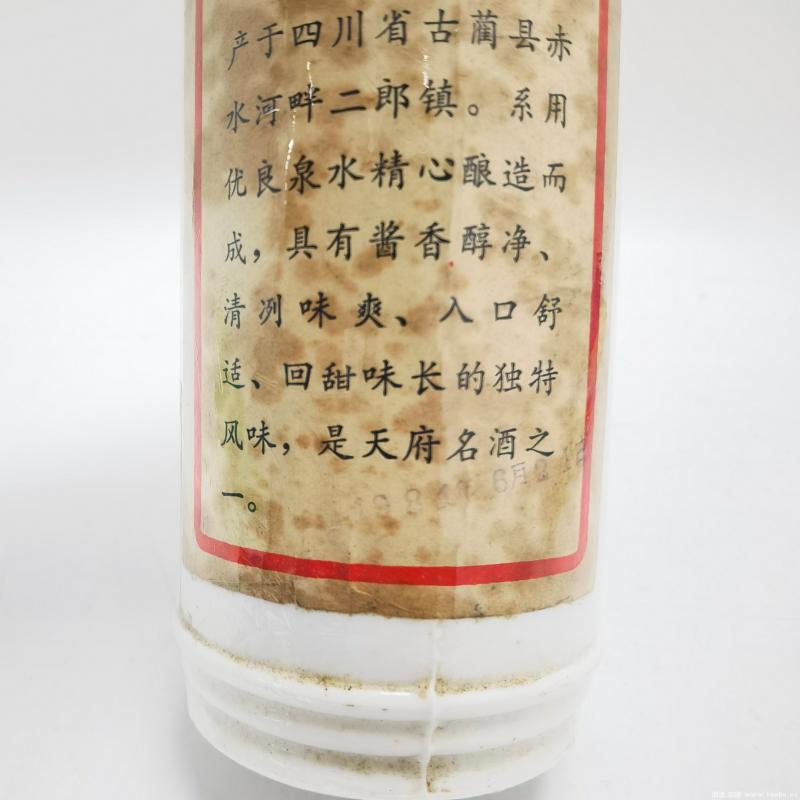 产于四川省古蔺县赤
水河畔二郎镇。系用
优良泉水精心酿造而
成，具有酱香醇净、
清冽味爽、入口舒
适、回甜味长的独特
风味，是天府名酒之
一。
6月